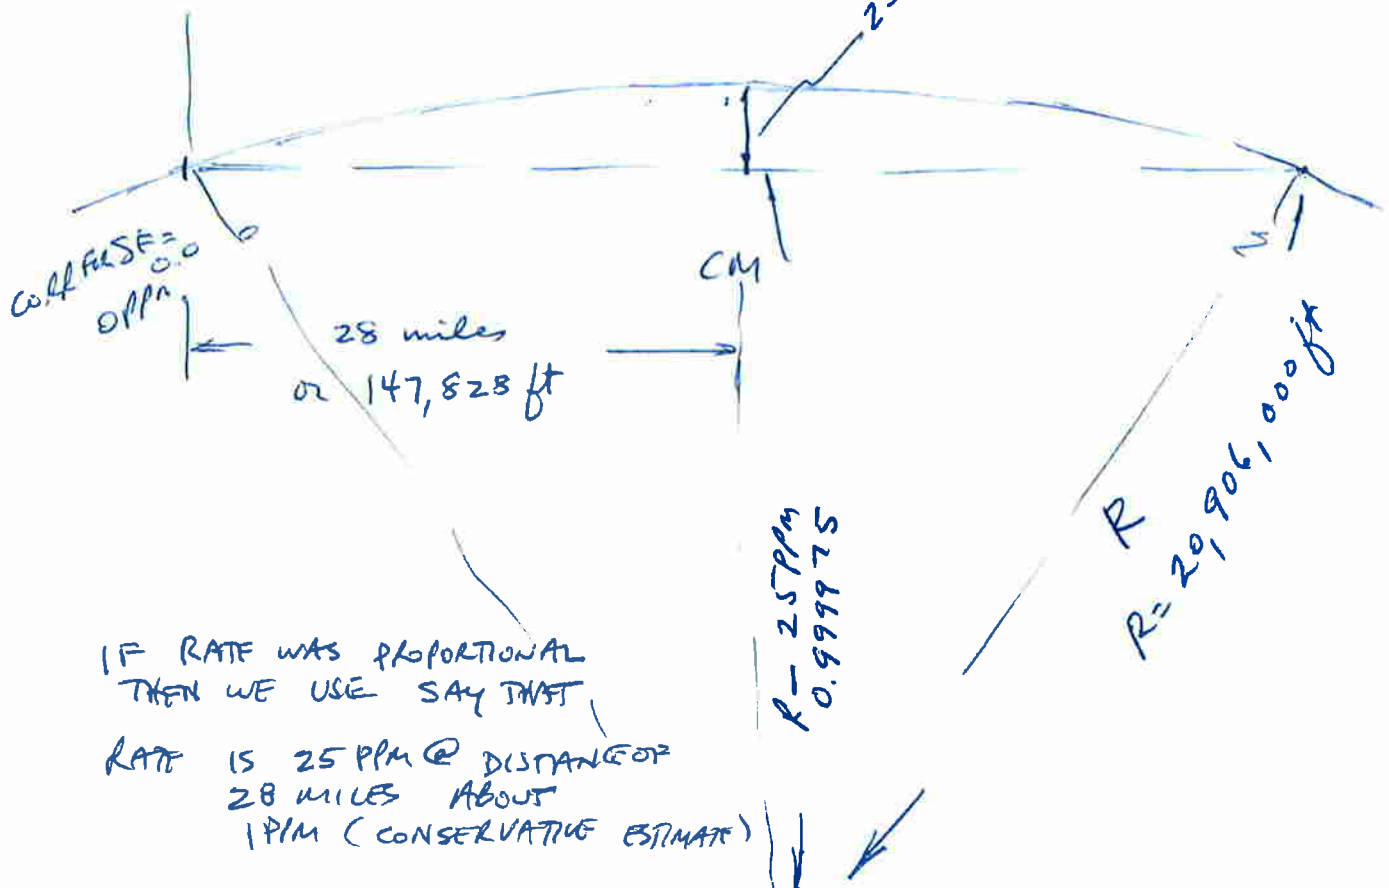 2-
0.0
0PPM
CM
28 miles
or 147,828 ft
R
R= 20,906,000 ft
R - 25PPM
0.999975
IF RATE WAS PROPORTIONAL
THEN WE USE SAY THAT
RATE IS 25 PPM @ DISTANCE OF
28 MILES ABOUT
1PPM (CONSERVATIVE ESTIMATE)